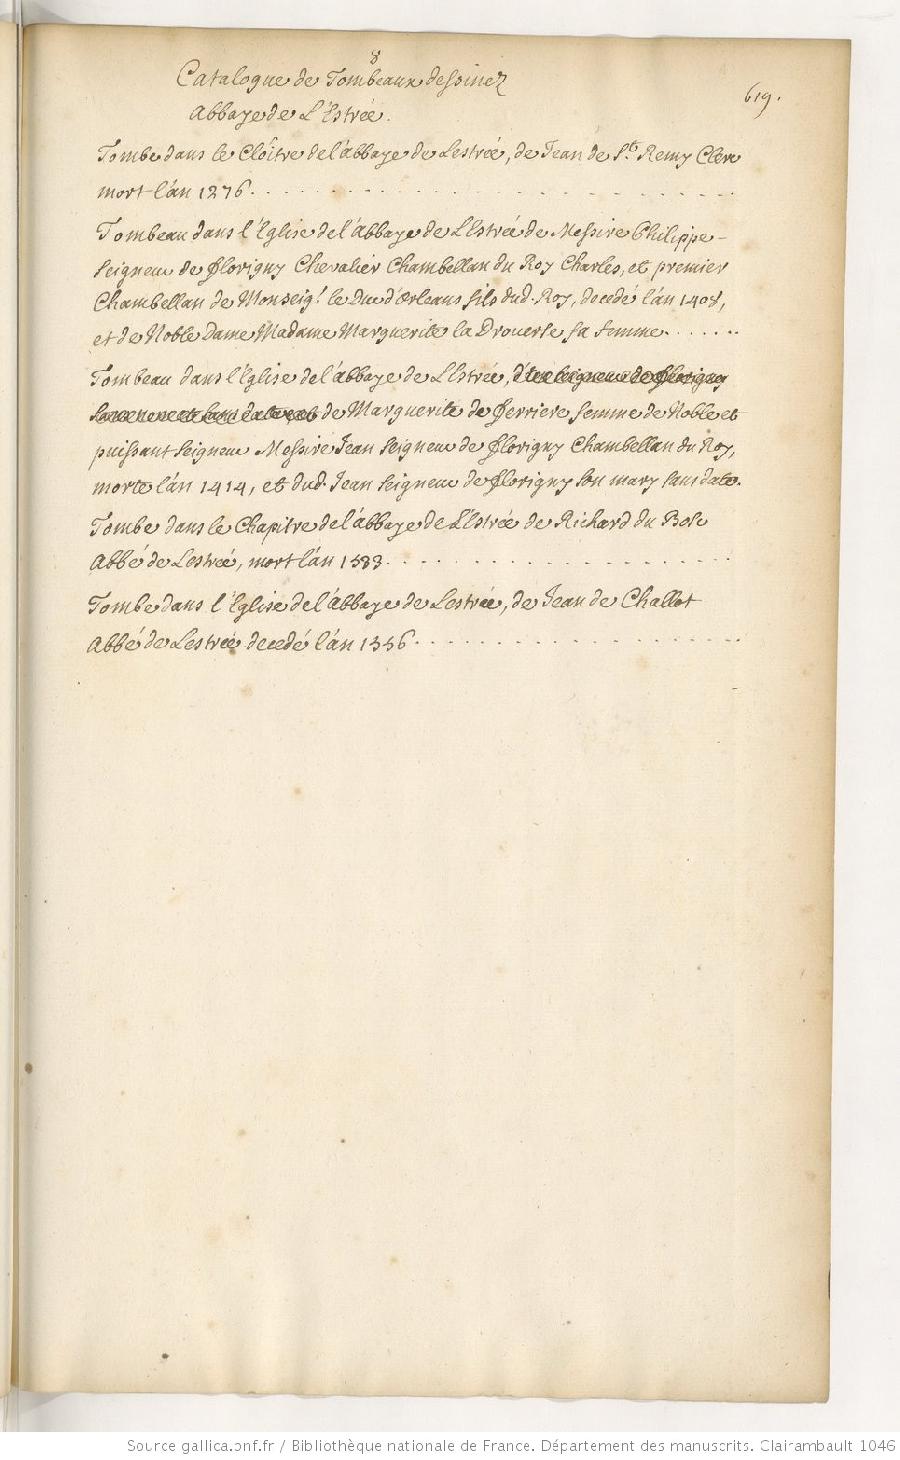 8
Catalogue de Tombeaux dessinez
Abbaye de L'Estrée.
619.
Tombe dans le Cloître de l'abbaye de Lestrée, de Jean de St. Remy Clerc
mort l'an 1276.
Tombeau dans l'Eglise de l'Abbaye de L'Estrée de Messire Philippe
seigneur de Florigny Chevalier Chambellan du Roy Charles, et premier
Chambellan de Monseigr. le Duc d'Orleans fils dud. Roy, decedé l'an 1408,
et de Noble Dame Madame Marguerite la Drouerle sa femme.
Tombeau dans l'Eglise de l'abbaye de L'Estrée,
de Marguerite de Ferriere femme de Noble et
puissant seigneur Messire Jean seigneur de Florigny Chambellan du Roy,
morte l'an 1414, et dud. Jean seigneur de Florigny son mary sans date.
Tombe dans le Chapitre de l'abbaye de L'Estrée de Richard du
Abbé de Lestreé, mort l'an
Tombe dans l'Eglise de l'abbaye de Lestrée, de Jean de Challot
Abbé de Lestrée decedé l'an 1356
Source gallica.bnf.fr / Bibliothèque nationale de France. Département des manuscrits. Clairambault 1046